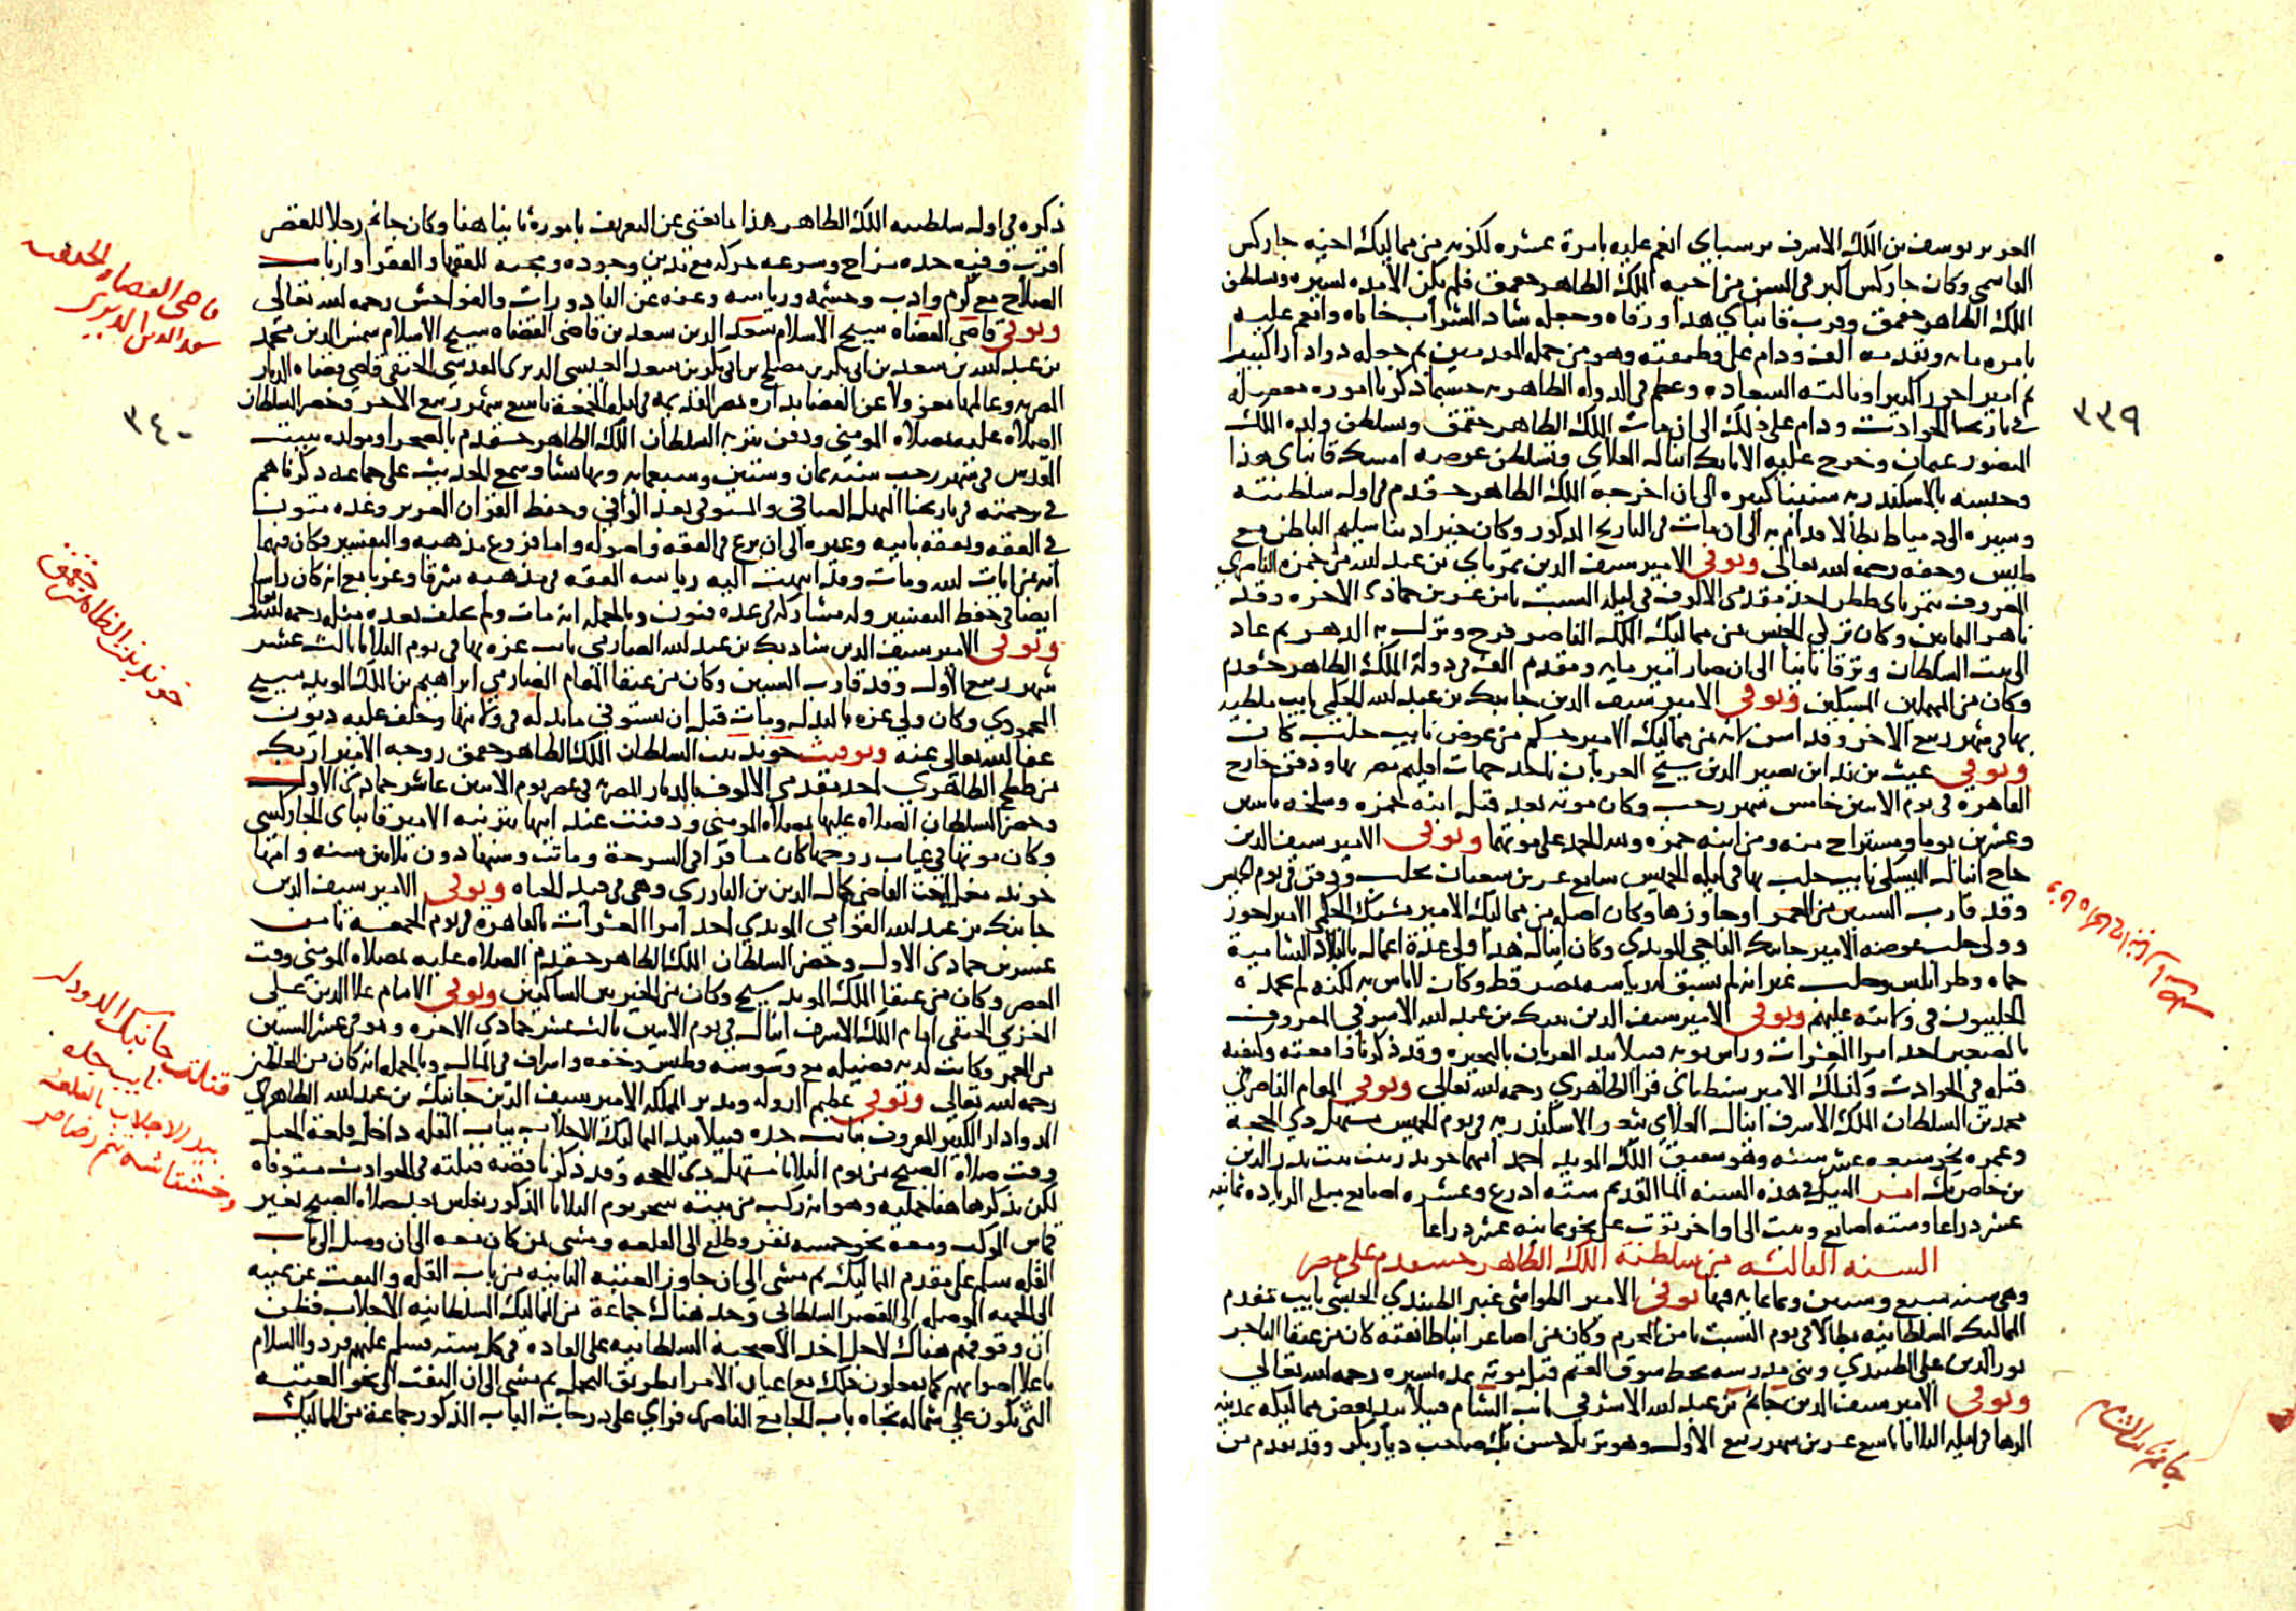 العزيز يوسف بن الملك الاشرف برسباي انعم عليه بامرة عشره لكونه من مماليك اخيه جاركس
القاسمي وكان جاركس اكبر في السن من اخيه الملك الظاهر جقمق فلم يكن الا مده يسيره وتسلطن
الملك الظاهر جقمق وقرب قانباي هذا ورقاه وجعله شاد الشراب خاناه وانعم عليه
بامره مايه وتقدمه الف ودام على وظيفته وهو من جمله المقدمين ثم جعله دوادارا كبيرا
ثم امير اخور كبيرا ونالته السعاده وعظم في الدوله الظاهريه حسبما ذكرنا اموره مفصله
في تاريخنا الحوادث ودام على ذلك الى ان مات الملك الظاهر جقمق وتسلطن ولده الملك
المنصور عثمان وخرج عليه الاتابك اينال العلاي وتسلطن عوضه امسك قانباي هذا
وحبسه بالاسكندريه سنينا كثيره الى ان اخرجه الملك الظاهر خشقدم في اول سلطنته
وسيره الى دمياط بطالا فدام به الى ان مات في التاريخ المذكور وكان خيرا دينا سليم الباطن مع
طيش وخفه رحمه الله تعالى وتوفي الامير سيف الدين تمرباي بن عبد الله من حمزه الناصري
المعروف بتمرباي ططر احد مقدمي الالوف في ليله السبت ثامن عشرين جمادى الاخره وقد
ناهز الثمانين وكان تركي الجنس من مماليك الملك الناصر فرج ونزل به الدهر ثم عاد
الى بيت السلطان وترقا ثانيا الى ان صار امير مايه ومقدم الف في دولة الملك الظاهر خشقدم
وكان من المهملين المسكين وتوفي الامير سيف الدين جانبك بن عبد الله الجكمي نايب ملطيه
بها في شهر ربيع الاخر وقد اسن لانه من مماليك الامير جكم من عوض نايب حلب كان
وتوفي غيث بن ندا بن نصير الدين شيخ العربان باحد جهات اقليم مصر بها ودفن خارج
القاهره في يوم الاثنين خامس شهر رجب وكان موته بعد قتل ابنه حمزه وسلخه باثنين
وعشرين يوما ومستراح منه ومن ابنه حمزه ولله الحمد على موتهما وتوفي الامير سيف الدين
حاج اينال اليشبكي نايب حلب بها في ليله الخميس سابع عشرين شعبان بحلب ودفن في يوم الخميس
وقد قارب الستين من العمر او جاوزها وكان اصله من مماليك الامير يشبك الجكمي الامير اخور
وولى حلب عوضه الامير جانبك التاجي المويدي وكان اينال هذا ولي عدة اعمال بالبلاد الشامية
حماه وطرابلس وحلب غير انه لم يسبق له رياسه بمصر قط وكان لا باس به لكنه لم يحمده
الحلبيون في ولايته عليهم وتوفي الامير سيف الدين بن عبد الله الاشرفي المعروف
بالصغير احد امرا العشرات وراس نوبه قتيلا بيد العربان بالبحيره وقد ذكرنا واقعته وكيفيه
قتله في الحوادث وكذلك الامير سنطباي قرا الظاهري رحمه الله تعالى وتوفي المقام الناصري
محمد بن السلطان الملك الاشرف اينال العلاي بثغر الاسكندريه في يوم الخميس مستهل ذي الحجه
وعمره نحو سبعه عشر سنه وهو شقيق الملك المويد احمد امهما خوند زينب بنت بدر الدين
بن خاص بك امر النيل في هذه السنه الما القديم سته اذرع وعشره اصابع مبلغ الزياده ثمانيه
عشر ذراعا وسته اصابع وثبت الى اواخر توت على نحو ثمانيه عشر ذراعا
السنه الثالثه من سلطنة الملك الظاهر خشقدم على مصر
وهي سنه سبع وستين وثمانمايه فيها توفي الامير الطواشي عنبر الطنبدي الحبشي نايب مقدم
المماليك السلطانيه بطالا في يوم السبت ثامن المحرم وكان من اصاغر ابنا طائفته كان من عتقا التاجر
نور الدين علي الطنبدي وبنى مدرسه بخط سوق الغنم قبل موته بمده يسيره رحمه الله تعالى
وتوفي الامير سيف الدين جانم بن عبد الله الاشرفي نايب الشام قتيلا بيد بعض مماليكه بمدينه
الرها في ليله الثلاثا تاسع عشرين شهر ربيع الاول وهو نزيل حسن بك صاحب ديار بكر وقد تقدم من
٣٣٩
جانم نايب الشام
ذكره في اول سلطنه الملك الظاهر هذا ما يغني عن التعريف باموره ثانيا هنا وكان جانم رجلا للقصر
اقرب وفيه حده مزاج وسرعه حركه مع تدين وجوده ومحبه للفقها والفقرا وارباب
الصلاح مع كرم وادب وحشمه ورياسه وعفه عن القاذورات والفواحش رحمه الله تعالى
وتوفي قاضي القضاه شيخ الاسلام سعد الدين سعد بن قاضي القضاه شيخ الاسلام شمس الدين محمد
بن عبد الله بن سعد بن ابي بكر بن مصلح بن ابي بكر بن سعد العبسي الديري المقدسي الحنفي قاضي قضاه الديار
المصريه وعالمها معزولا عن القضا بداره بمصر القديمه في ليله الجمعة تاسع شهر ربيع الاخر وحضر السلطان
الصلاه عليه بمصلاه المومني ودفن بتربه السلطان الملك الظاهر خشقدم بالصحرا ومولده ببيت
المقدس في شهر رجب سنه ثمان وستين وسبعمايه وبها نشا وسمع الحديث على جماعه ذكرناهم
في ترجمته في تاريخنا المنهل الصافي والمستوفى بعد الوافي وحفظ القران العزيز وعده متون
في الفقه وتفقه بابيه وغيره الى ان برع في الفقه واصوله واما فروع مذهبه والتفسير وكان فيهما
ايه من ايات الله ومات وقد انتهت اليه رياسه الفقه في مذهبه شرقا وغربا مع انه كان راسا
ايضا في حفظ التفسير وله مشاركه في عده فنون وبالجمله انه مات ولم يخلف بعده مثله رحمه الله تعالى
وتوفي الامير سيف الدين شاد بك بن عبد الله الصارمي نايب غزه بها في يوم الثلاثا ثالث عشر
شهر ربيع الاول وقد قارب الستين وكان من عتقا المقام الصارمي ابراهيم بن الملك المويد شيخ
المحمودي وكان ولي غزه بالبذل ومات قبل ان يستوفي ما بذله في ولايتها وخلف عليه ديون
عفا الله تعالى عنه وتوفيت خوند بنت السلطان الملك الظاهر جقمق زوجه الامير ازبك
من ططخ الظاهري احد مقدمي الالوف بالديار المصريه في عصر يوم الاثنين عاشر جمادى الاولى
وحضر السلطان الصلاه عليها بمصلاه المومني ودفنت عند ابيها بتربه الامير قانباي الجاركسي
وكان موتها في غياب زوجها كان مسافرا في السرحة وماتت وسنها دون ثلاثين سنه وامها
خوند مغل اخت القاضي كمال الدين بن البارزي وهي في قيد الحياه وتوفي الامير سيف الدين
جانبك بن عبد الله القوامي المويدي احد امرا العشرات بالقاهرة في يوم الجمعه ثامن
عشرين جمادى الاولى وحضر السلطان الملك الظاهر خشقدم الصلاه عليه بمصلاه المومني وقت
العصر وكان من عتقا الملك المويد شيخ وكان من الخيرين الساكنين وتوفي الامام علا الدين علي
الغزي الحنفي امام الملك الاشرف اينال في يوم الاثنين ثالث عشر جمادى الاخره وهو في عشر الستين
من العمر وكانت لديه فضيله مع وسوسه وطيش وخفه واسراف في المال وبالجمله انه كان من المخلطين
رحمه الله تعالى وتوفي عظيم الدوله ومدبر المملكه الامير سيف الدين جانبك بن عبد الله الظاهري
الدوادار الكبير المعروف بنايب جده قتيلا بيد المماليك الاجلاب بباب القله داخل قلعة الجبل
وقت صلاة الصبح من يوم الثلاثا مستهل ذي الحجه وقد ذكرنا قضيه قتلته في الحوادث مستوفاه
لكن نذكرها هنا جمليه وهو انه ركب من بيته سحر يوم الثلاثا المذكور بغلس بعد صلاه الصبح بغير
قماش الموكب ومعه نحو خمسه نفر وطلع الى القلعه ومشى بمن كان معه الى ان وصل الى باب
القله سلم على مقدم المماليك ثم مشى الى ان جاوز العتبه الثانيه من باب القله والتفت عن يمينه
الى الجهه الموصله الى القصر السلطاني وجد هناك جماعة من المماليك السلطانيه الاجلاب فظن
ان وقوفهم هناك لاجل اخذ الاضحيه السلطانيه على العاده في كل سنه فسلم عليهم فردوا السلام
باعلا اصواتهم كما يفعلون ذلك مع اعيان الامرا بطريق التجمل ثم مشى الى ان التفت الى نحو العتبه
التي تكون على شماله تجاه باب الجامع الناصري فراى على درجات الباب المذكور جماعة من المماليك
٣٤٠
قاضي القضاه الحنفيه
سعد الدين الديري
خوند بنت الظاهر جقمق
قتلة جانبك الدوادار
نايب جده
بيد الاجلاب بالقلعه